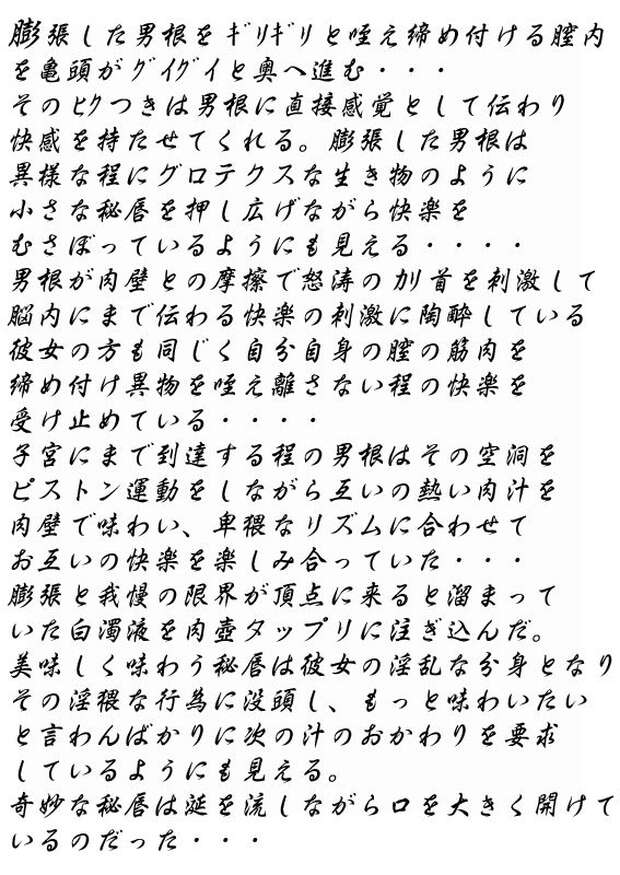 膨張した男根をｷﾞﾘｷﾞﾘと咥え締め付ける膣内
を亀頭がｸﾞｲｸﾞｲと奥へ進む・・・
そのﾋｸつきは男根に直接感覚として伝わり
快感を持たせてくれる。膨張した男根は
異様な程にグロテクスな生き物のように
小さな秘唇を押し広げながら快楽を
むさぼっているようにも見える・・・・
男根が肉壁との摩擦で怒涛のｶﾘ首を刺激して
脳内にまで伝わる快楽の刺激に陶酔している
彼女の方も同じく自分自身の膣の筋肉を
締め付け異物を咥え離さない程の快楽を
受け止めている・・・・
子宮にまで到達する程の男根はその空洞を
ピストン運動をしながら互いの熱い肉汁を
肉壁で味わい、卑猥なリズムに合わせて
お互いの快楽を楽しみ合っていた・・・
膨張と我慢の限界が頂点に来ると溜まって
いた白濁液を肉壺タップリに注ぎ込んだ。
美味しく味わう秘唇は彼女の淫乱な分身となり
その淫猥な行為に没頭し、もっと味わいたい
と言わんばかりに次の汁のおかわりを要求
しているようにも見える。
奇妙な秘唇は涎を流しながら口を大きく開けて
いるのだった・・・